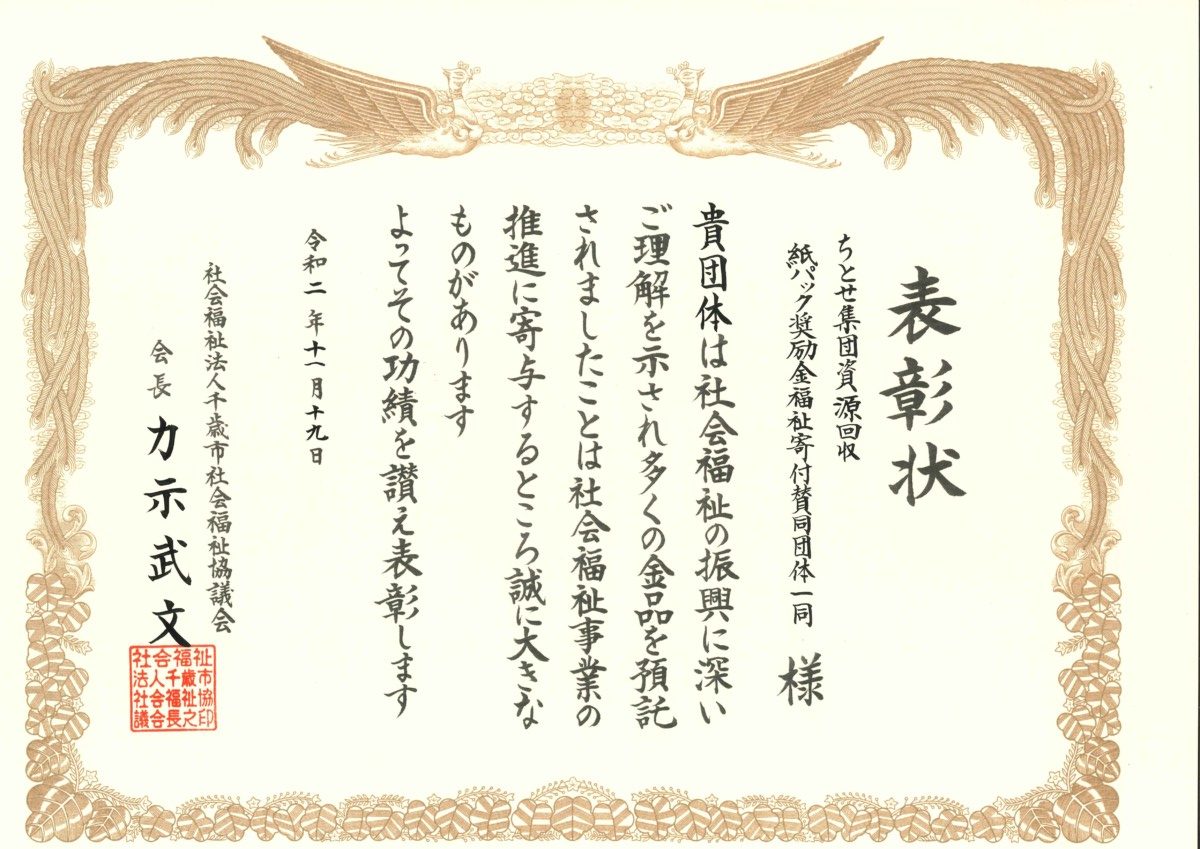 表彰状
ちとせ集団資源回収
紙パック奨励金福祉寄付賛同団体一同
様
貴団体は社会福祉の振興に深い
ご理解を示され多くの金品を預託
されましたことは社会福祉事業の
推進に寄与するところ誠に大きな
ものがあります
よってその功績を讃え表彰します
令和二年十一月十九日
社会福祉法人千歳市社会福祉協議会
会長 力示武文
社会福祉
法人千歳市
社会福祉協
議会長之印